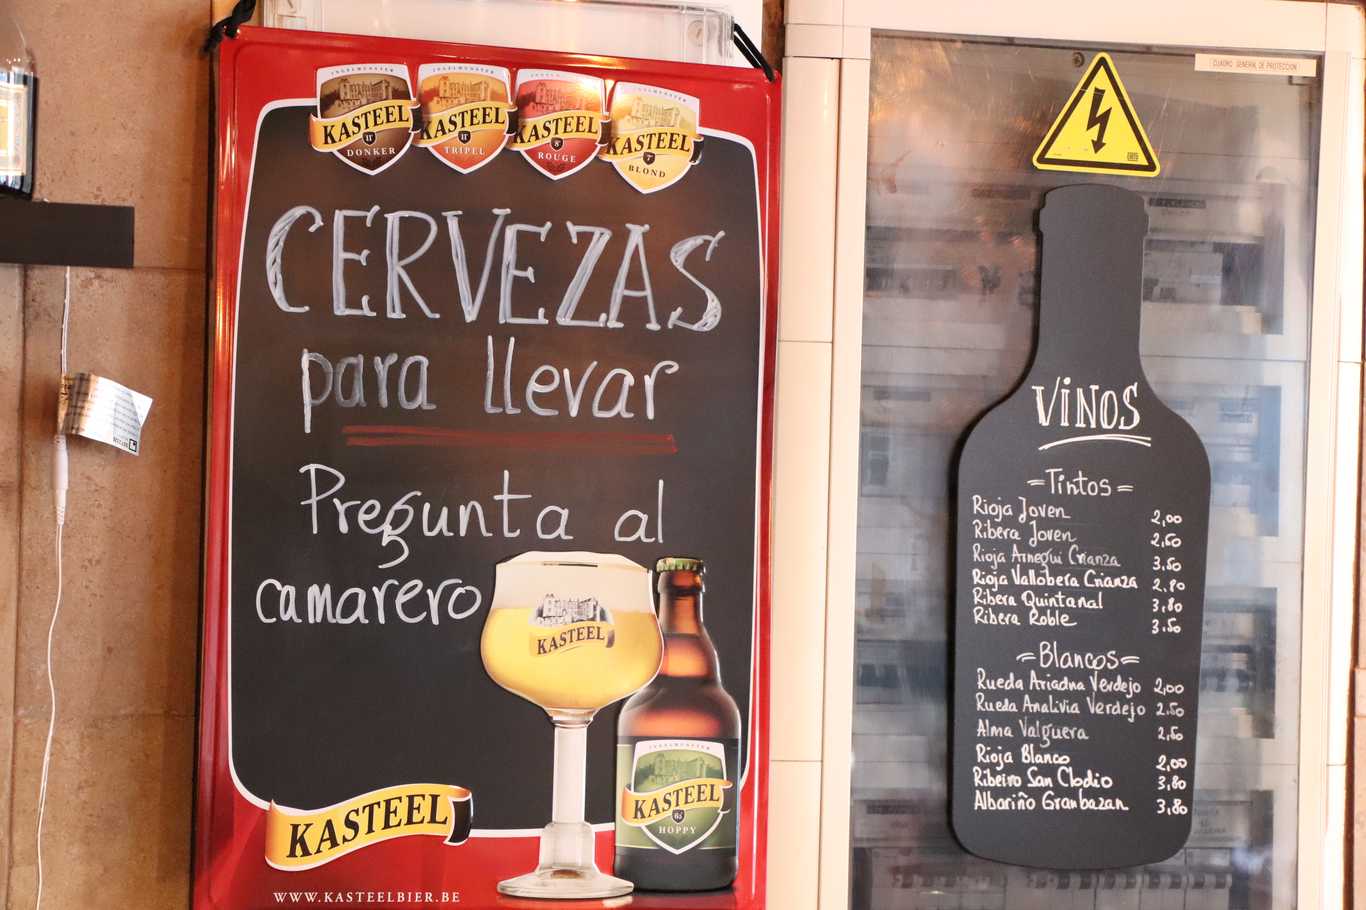 INGELMUNSTER
KASTEEL
11°
DONKER
INGELMUNSTER
KASTEEL
11°
TRIPEL
INGELMUNSTER
KASTEEL
8°
ROUGE
INGELMUNSTER
KASTEEL
7°
BLOND
CERVEZAS
para llevar
Pregunta al
camarero
KASTEEL
INGELMUNSTER
KASTEEL
HOPPY
KASTEEL
WWW.KASTEELBIER.BE
CUADRO GENERAL DE PROTECCION
VINOS
=Tintos=
Rioja Joven 2,00
Ribera Joven 2,50
Rioja Arnegui Crianza 3,50
Rioja Vallobera Crianza 2,80
Ribera Quintanal 3,80
Ribera Roble 3,50
=Blancos=
Rueda Ariadna Verdejo 2,00
Rueda Analivia Verdejo 2,50
Alma Valguera 2,50
Rioja Blanco 2,00
Ribeiro San Clodio 3,80
Albariño Granbazan 3,80